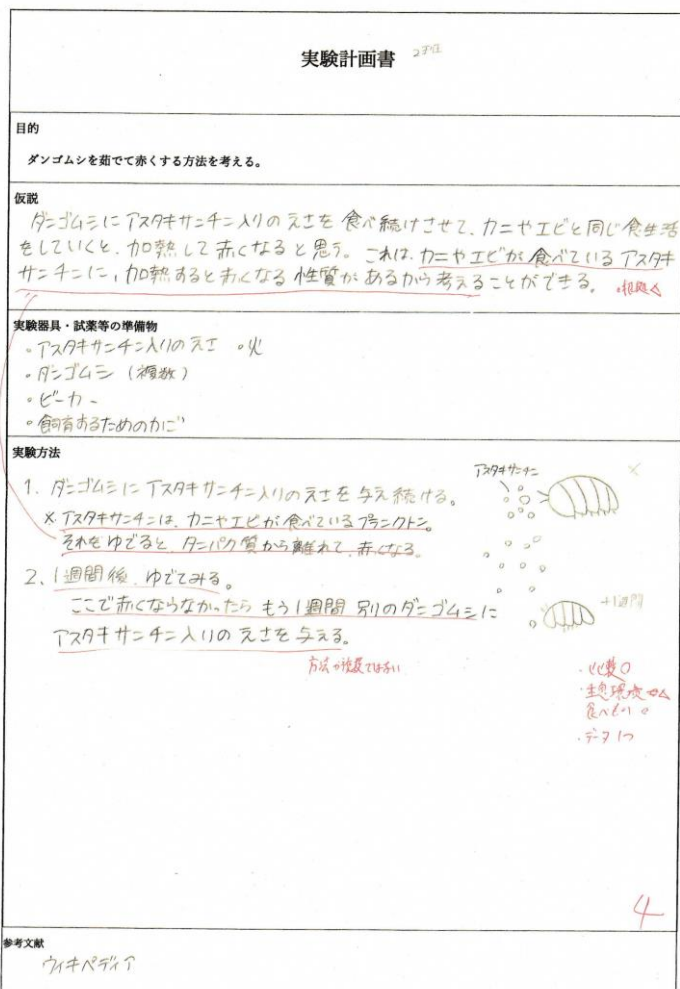 実験計画書
目的
ダンゴムシを茹でて赤くする方法を考える。
仮説
ダンゴムシにアスタキサンチン入りのえさを食べ続けさせて、カニやエビと同じ食生活
をしていくと、加熱して赤くなると思う。これは、カニやエビが食べているアスタキ
サンチンに、加熱すると赤くなる性質があるから考えることができる。
・根拠△
実験器具・試薬等の準備物
・アスタキサンチン入りのえさ ・火
・ダンゴムシ(複数)
・ビーカー
・飼育するためのかご
実験方法
1. ダンゴムシにアスタキサンチン入りのえさを与え続ける。
※アスタキサンチンは、カニやエビが食べているプランクトン。
それをゆでると、タンパク質から離れて、赤くなる。
2. 1週間後、ゆでてみる。
ここで赤くならなかったら もう1週間 別のダンゴムシに
アスタキサンチン入りの えさを与える。
アスタキサンチン
×
+1週間
方法が複数ではない
・比較○
・生息環境
食べもの
・データ1つ
4
参考文献
ウィキペディア